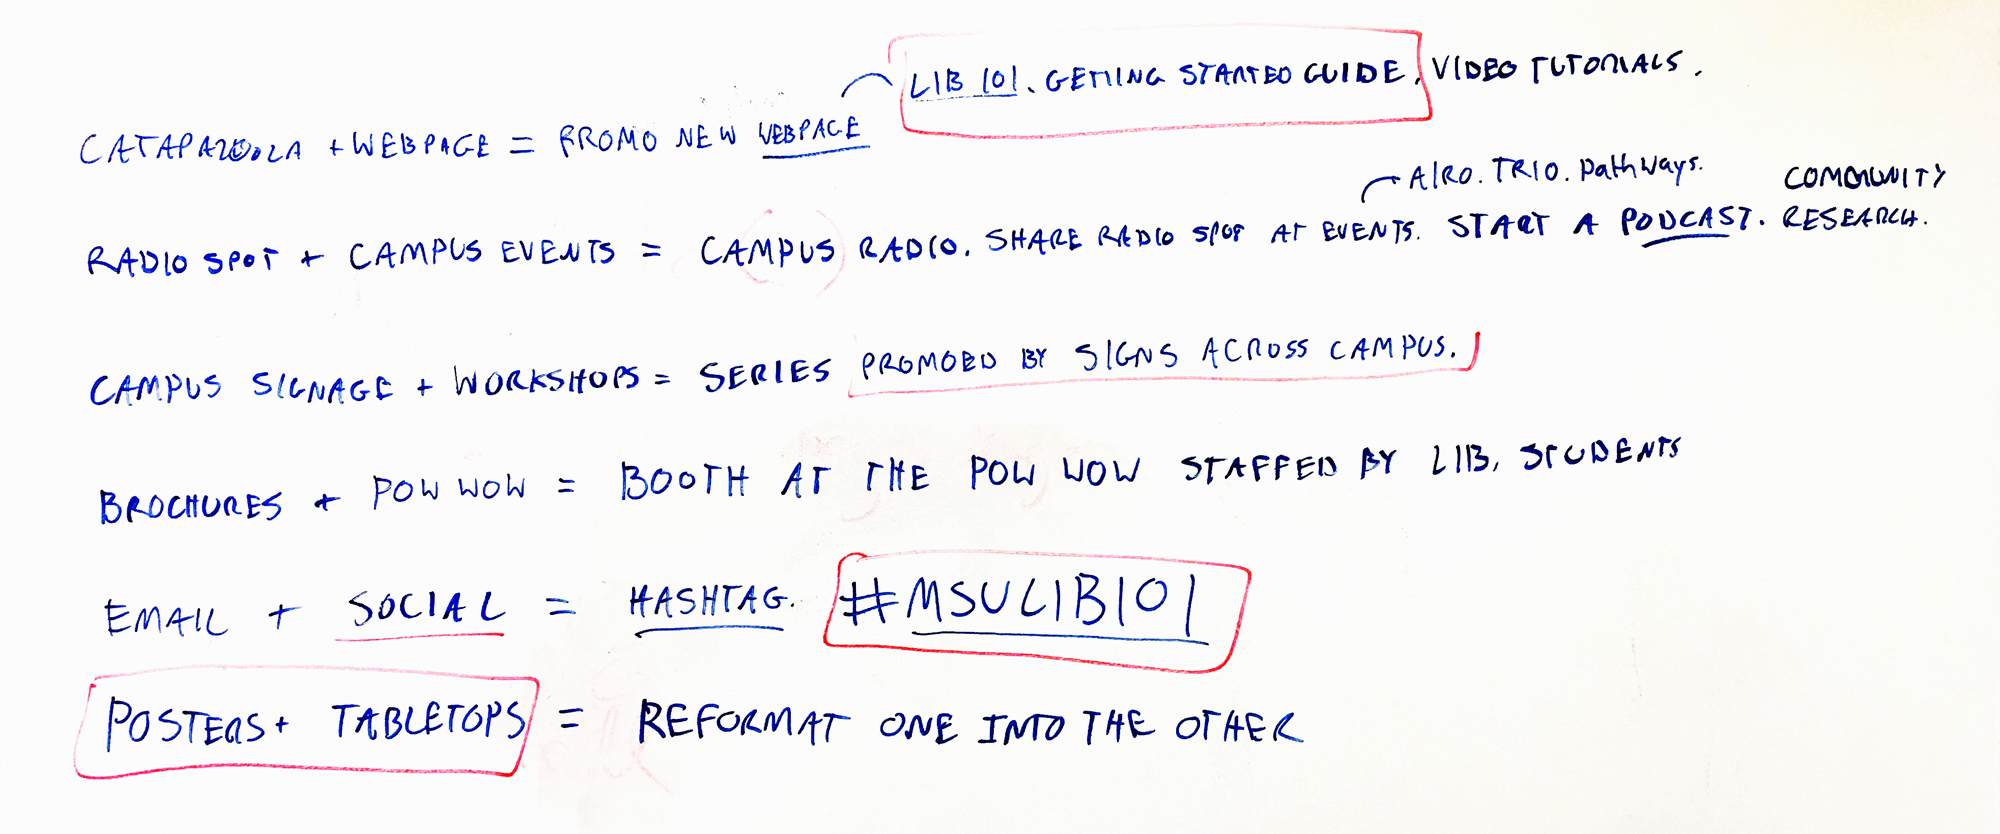 LIB 101. GETTING STARTED GUIDE. VIDEO TUTORIALS.
CATAPALOOZA + WEBPAGE = PROMO NEW WEBPAGE
AIRO. TRIO. Pathways.
RADIO SPOT + CAMPUS EVENTS = CAMPUS RADIO. SHARE RADIO SPOT AT EVENTS. START A PODCAST. COMMUNITY RESEARCH.
CAMPUS SIGNAGE + WORKSHOPS = SERIES PROMOED BY SIGNS ACROSS CAMPUS.
BROCHURES + POW WOW = BOOTH AT THE POW WOW STAFFED BY LIB. STUDENTS
EMAIL + SOCIAL = HASHTAG. #MSULIB101
POSTERS + TABLETOPS = REFORMAT ONE INTO THE OTHER